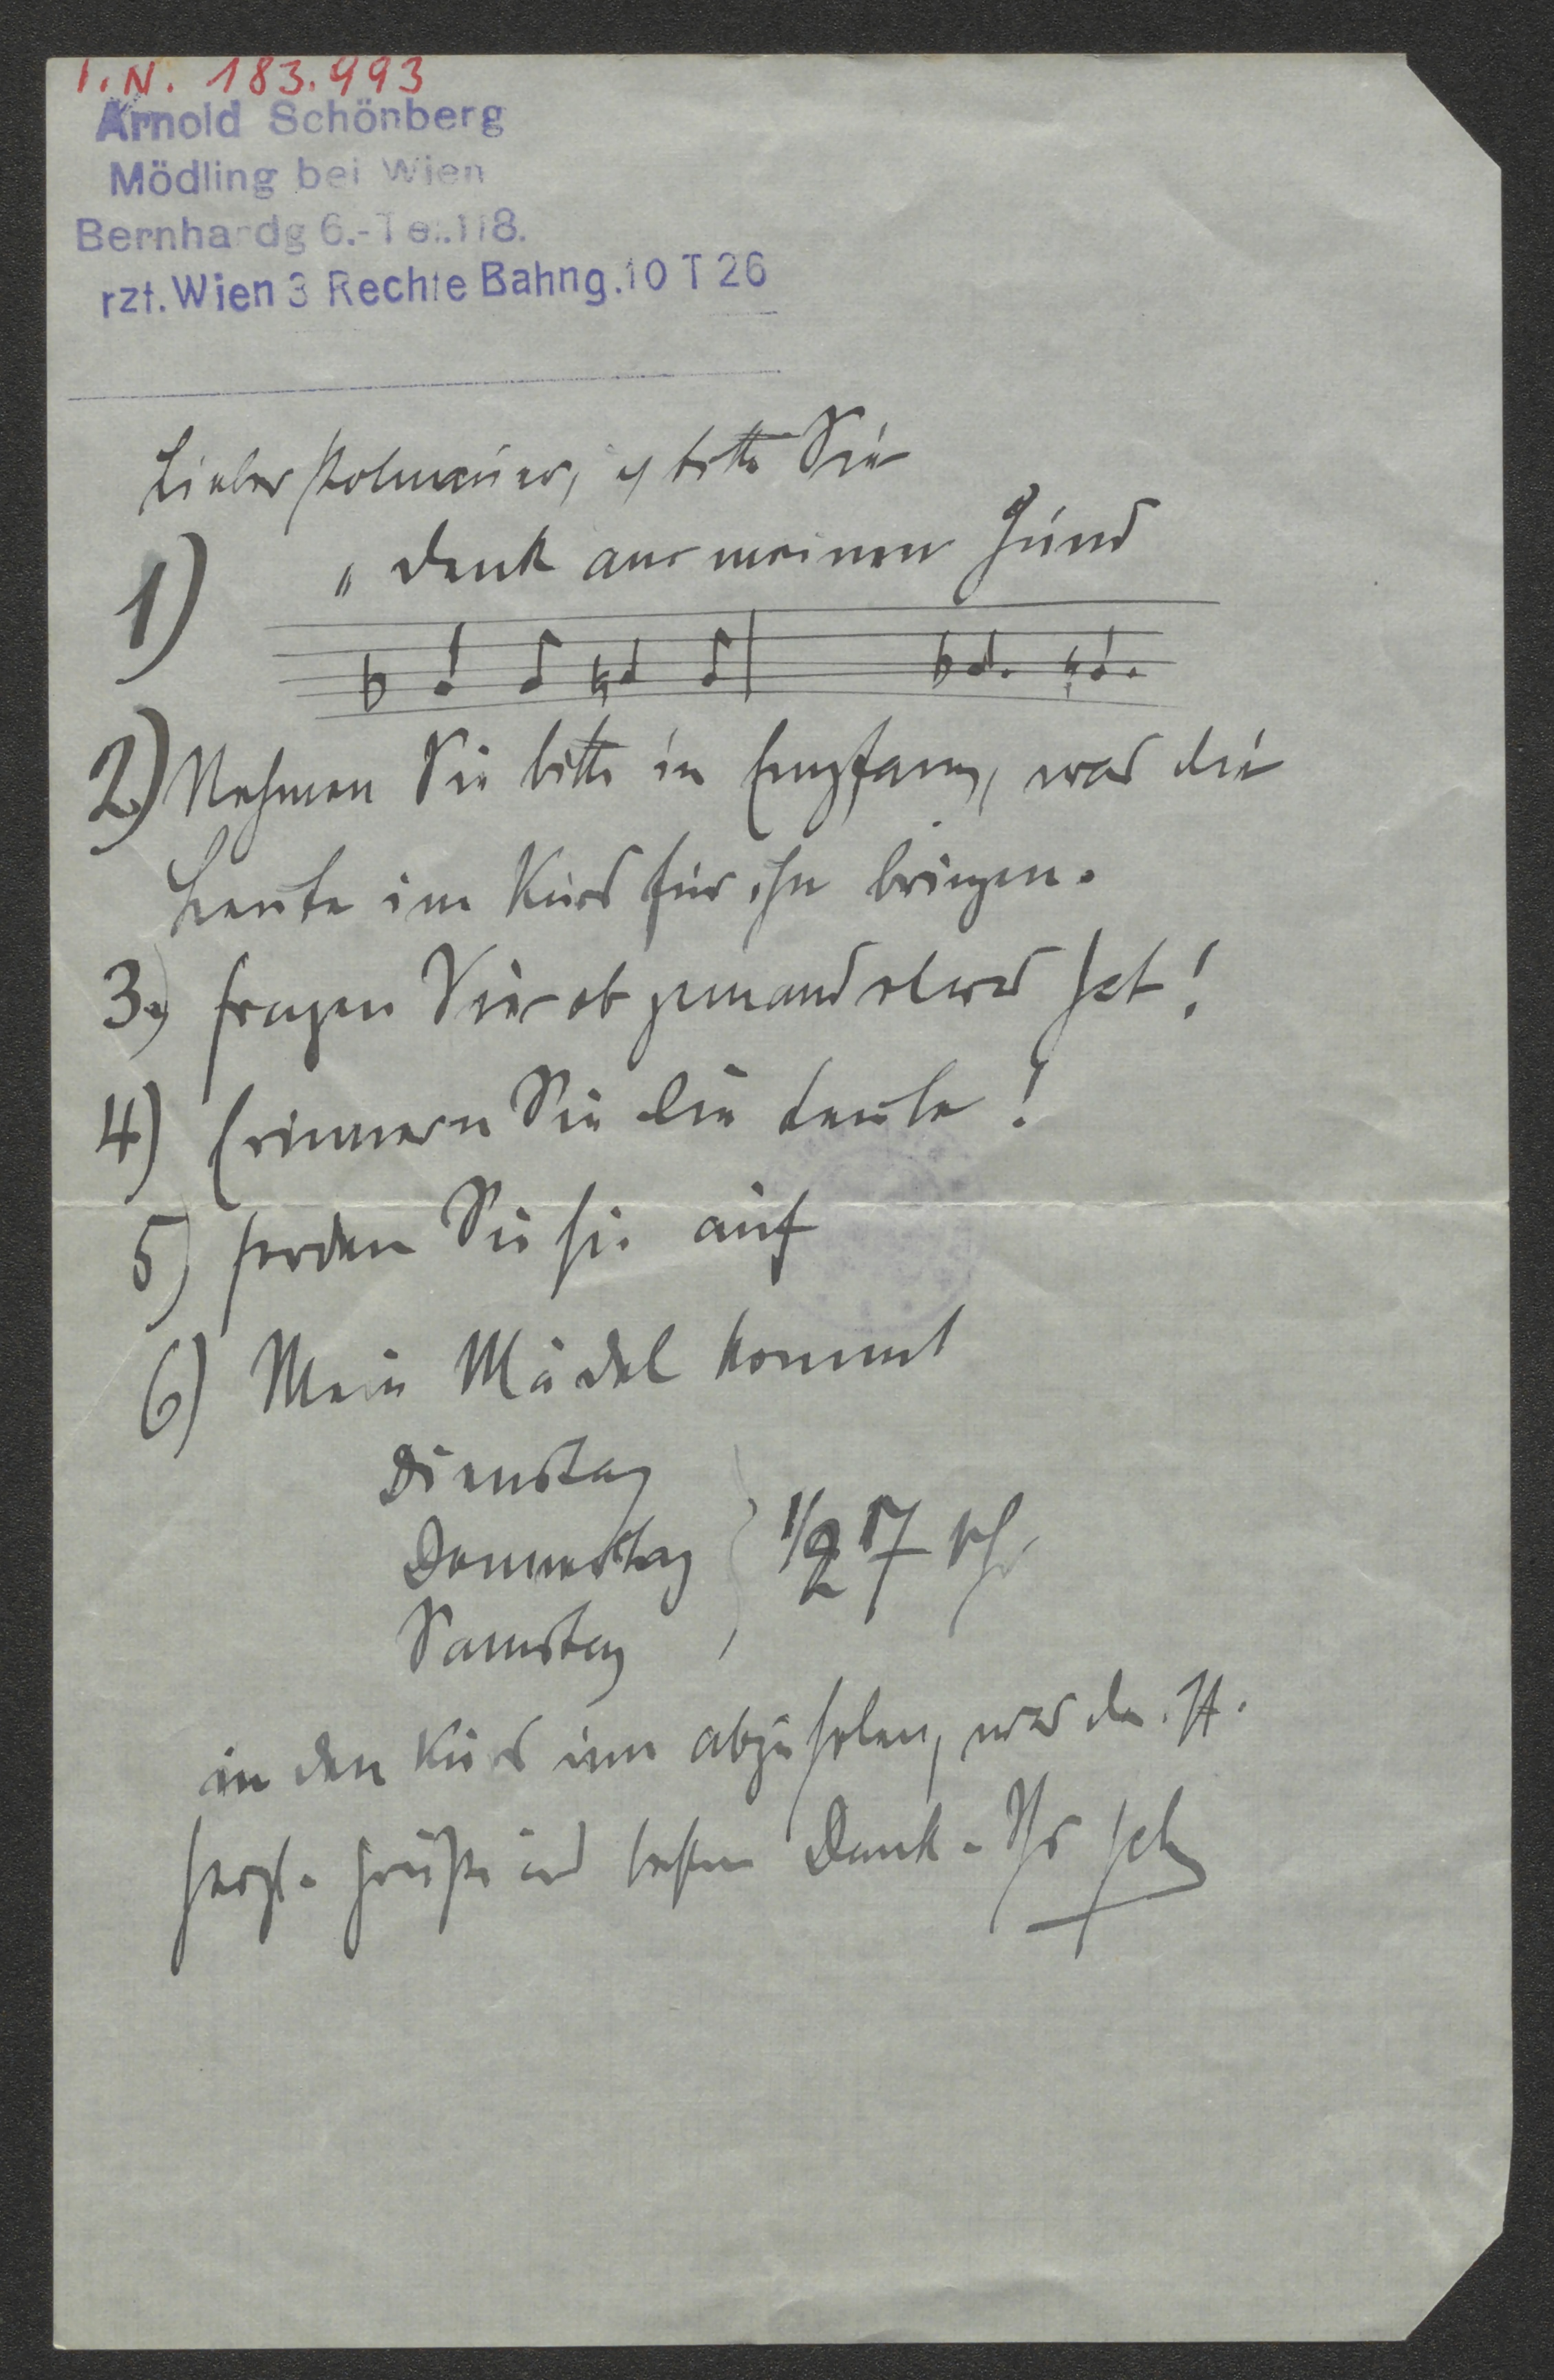 I.N. 183.993
Arnold Schönberg
Mödling bei Wien
Bernhardg 6.-Tel.118.
rzt. Wien 3 Rechte Bahng. 10 T 26
Lieber Polnauer, ich bitte Sie
1) „denk an meinen Hund
2) Nehmen Sie bitte in Empfang, was die
Leute im Kurs für ihn bringen.
3.) fragen Sie ob jemand etwas hat!
4) Erinnern Sie die Leute!
5) fordern Sie sie auf
6) Mein Mädel kommt
Dienstag
Donnerstag
Samstag
1/2 7 Uhr
in den Kurs um abzuholen, was da ist.
herzl. Grüße und besten Dank. Ihr Sch